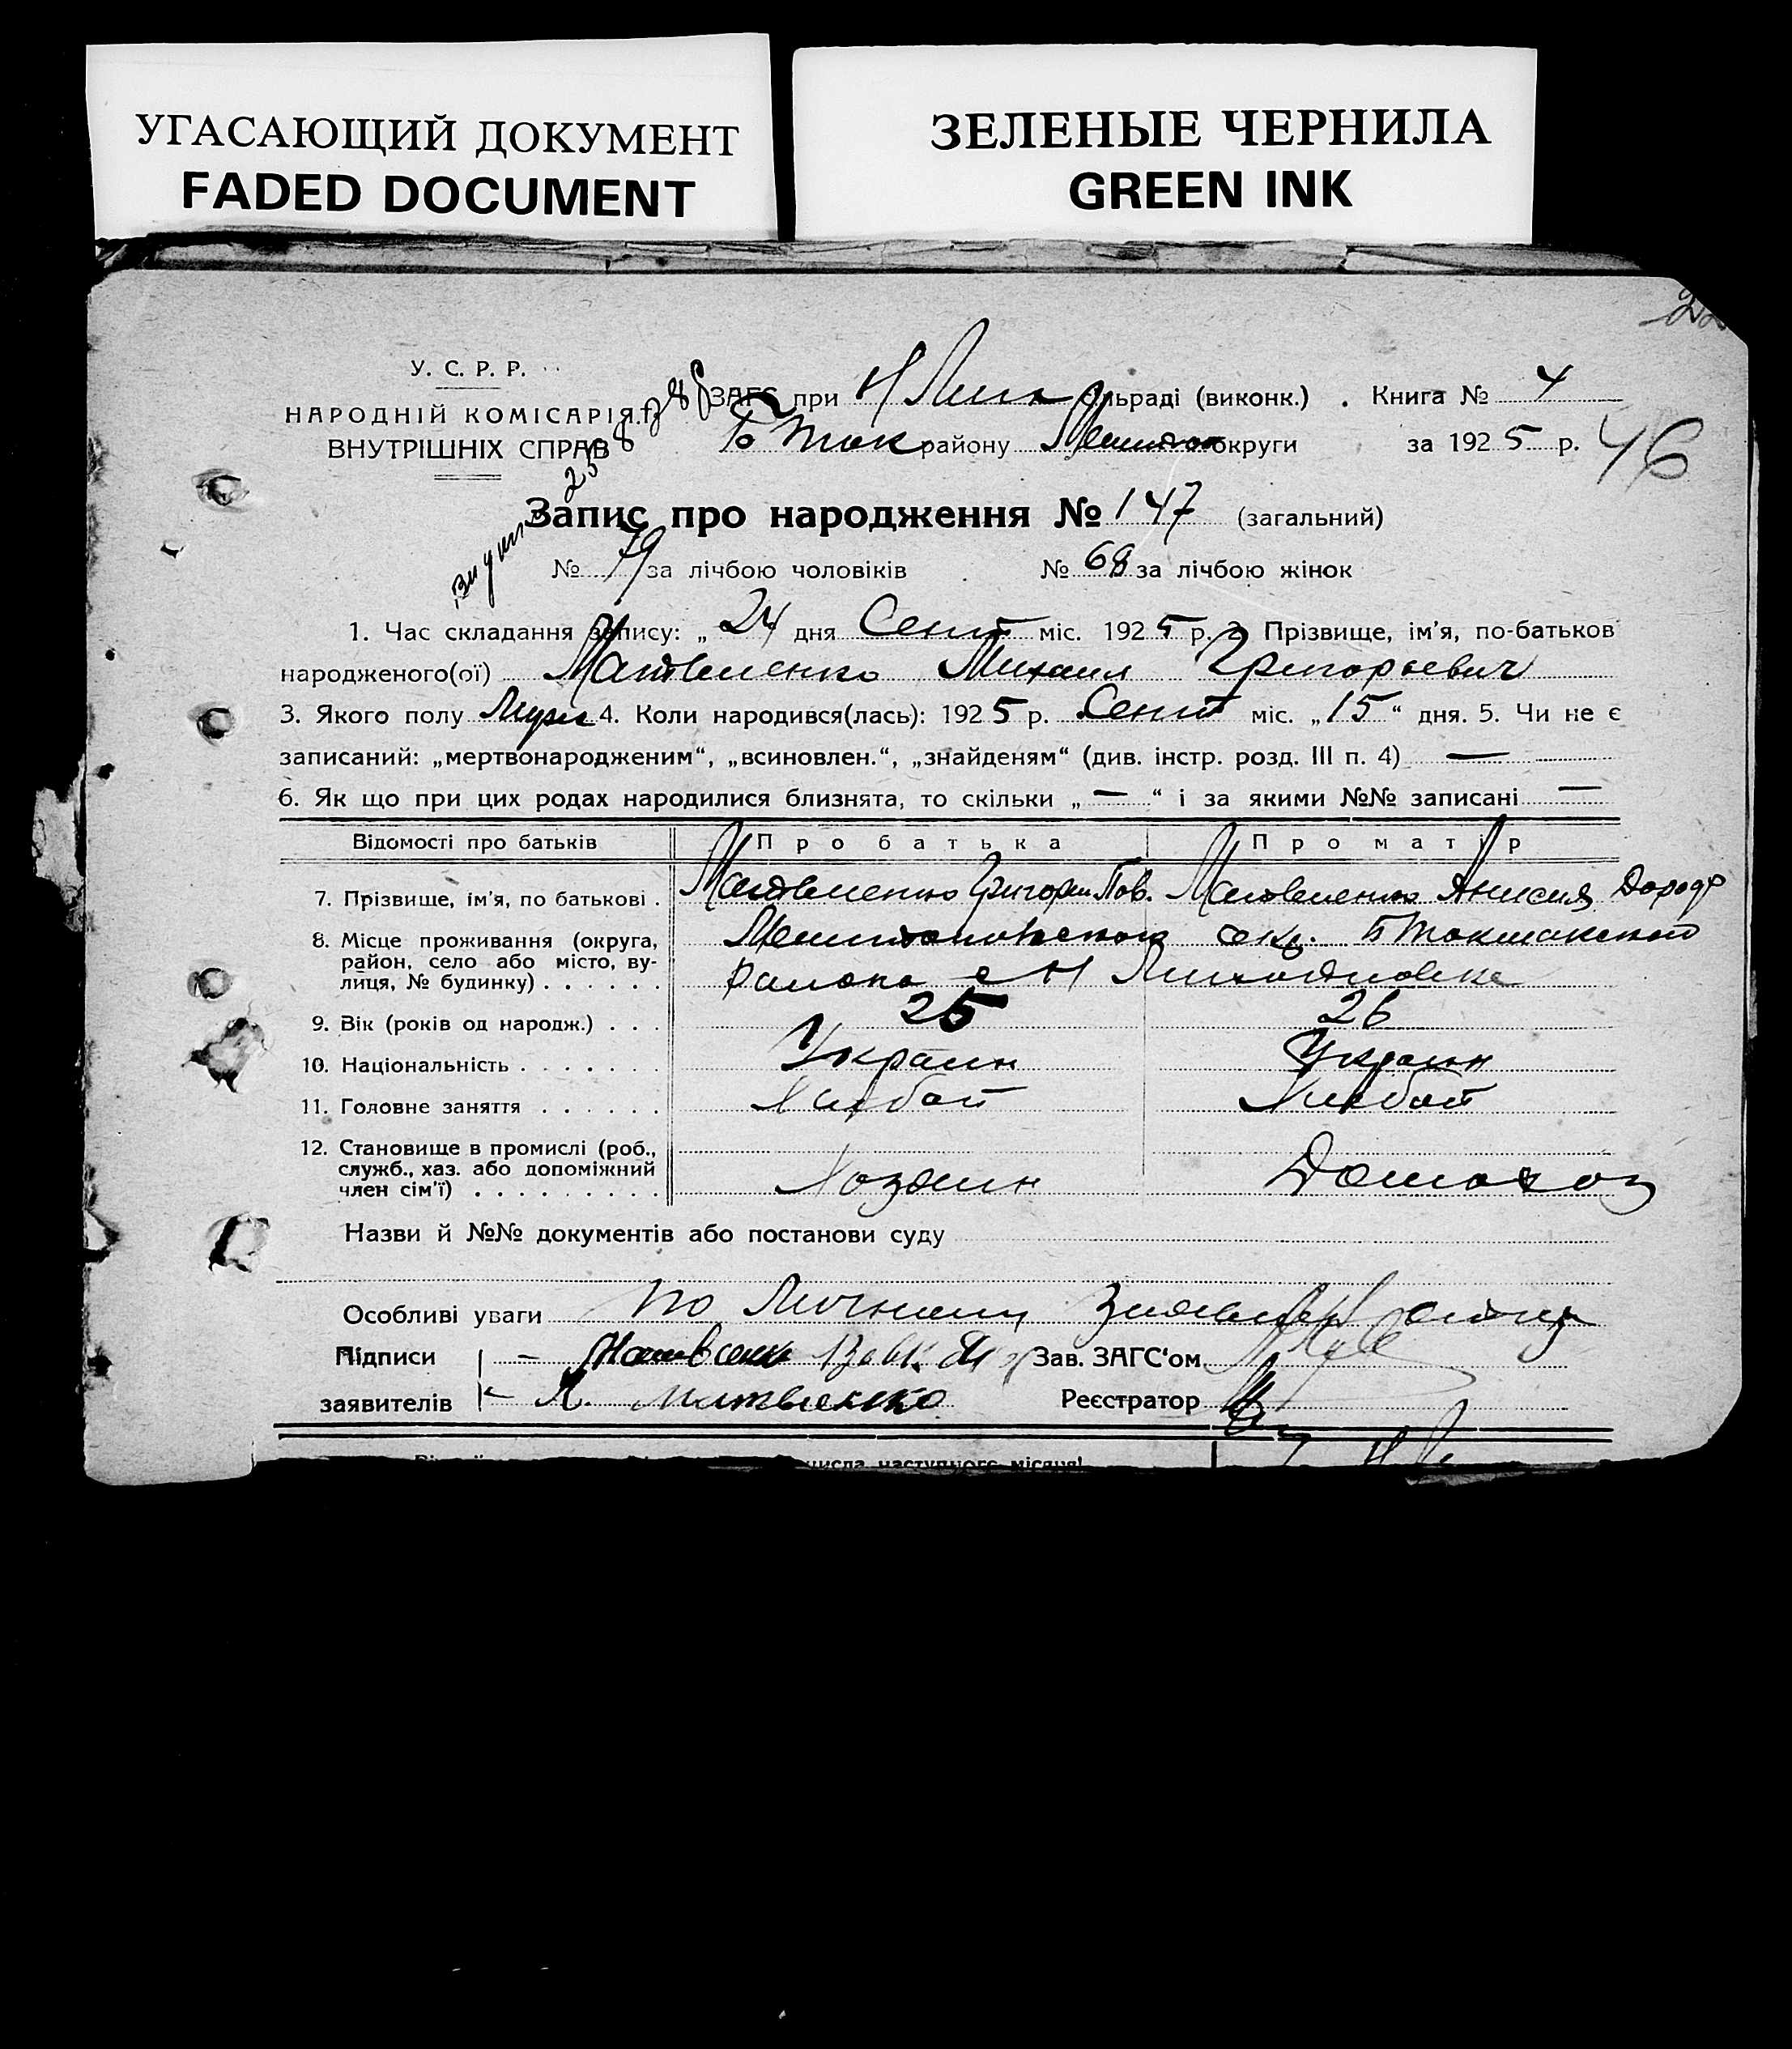 УГАСАЮЩИЙ ДОКУМЕНТ
FADED DOCUMENT
ЗЕЛЕНЫЕ ЧЕРНИЛА
GREEN INK
У. С. Р. Р.
НАРОДНІЙ КОМІСАРІЯТ
ВНУТРІШНІХ СПРАВ
ЗАГС при Н сільраді (виконк.) Книга № 4
Б Ток району округи за 1925 р. 46
Запис про народження № 147 (загальний)
№ 79 за лічбою чоловіків № 68 за лічбою жінок
1. Час складання запису: „ 24 дня Сент міс. 1925 р. 2. Прізвище, ім'я, по-батьков
народженого(ої) Матвиенко Михаил Григорьевич
3. Якого полу Муж 4. Коли народився(лась): 1925 р. Сент міс. „15“ дня. 5. Чи не є
записаний: „мертвонародженим“, „всиновлен.“, „знайденям“ (див. інстр. розд. III п. 4) —
6. Як що при цих родах народилися близнята, то скільки „ — “ і за якими №№ записані —
Відомості про батьків Про батька Про матір
7. Прізвище, ім'я, по батькові . Матвиенко Григори Пав. Матвиенко Анисия Дороф
8. Місце проживання (округа, район, село або місто, вулиця, № будинку) . . . . . . Мелитопольской окр. Б Токмакской
района с Н
9. Вік (років од народж.) . . . 25 26
10. Національність . . . . . . . Украин Украин
11. Головне заняття . . . . . . Хлебоп Хлебоп
12. Становище в промислі (роб., служб., хаз. або допоміжний член сім'ї) . . . . . . . . . Хозяин Домохоз
Назви й №№ документів або постанови суду
Особливі уваги по Личному отца
Підписи Зав. ЗАГС'ом
заявителів Матвиенко Реєстратор
числа наступного місяця!